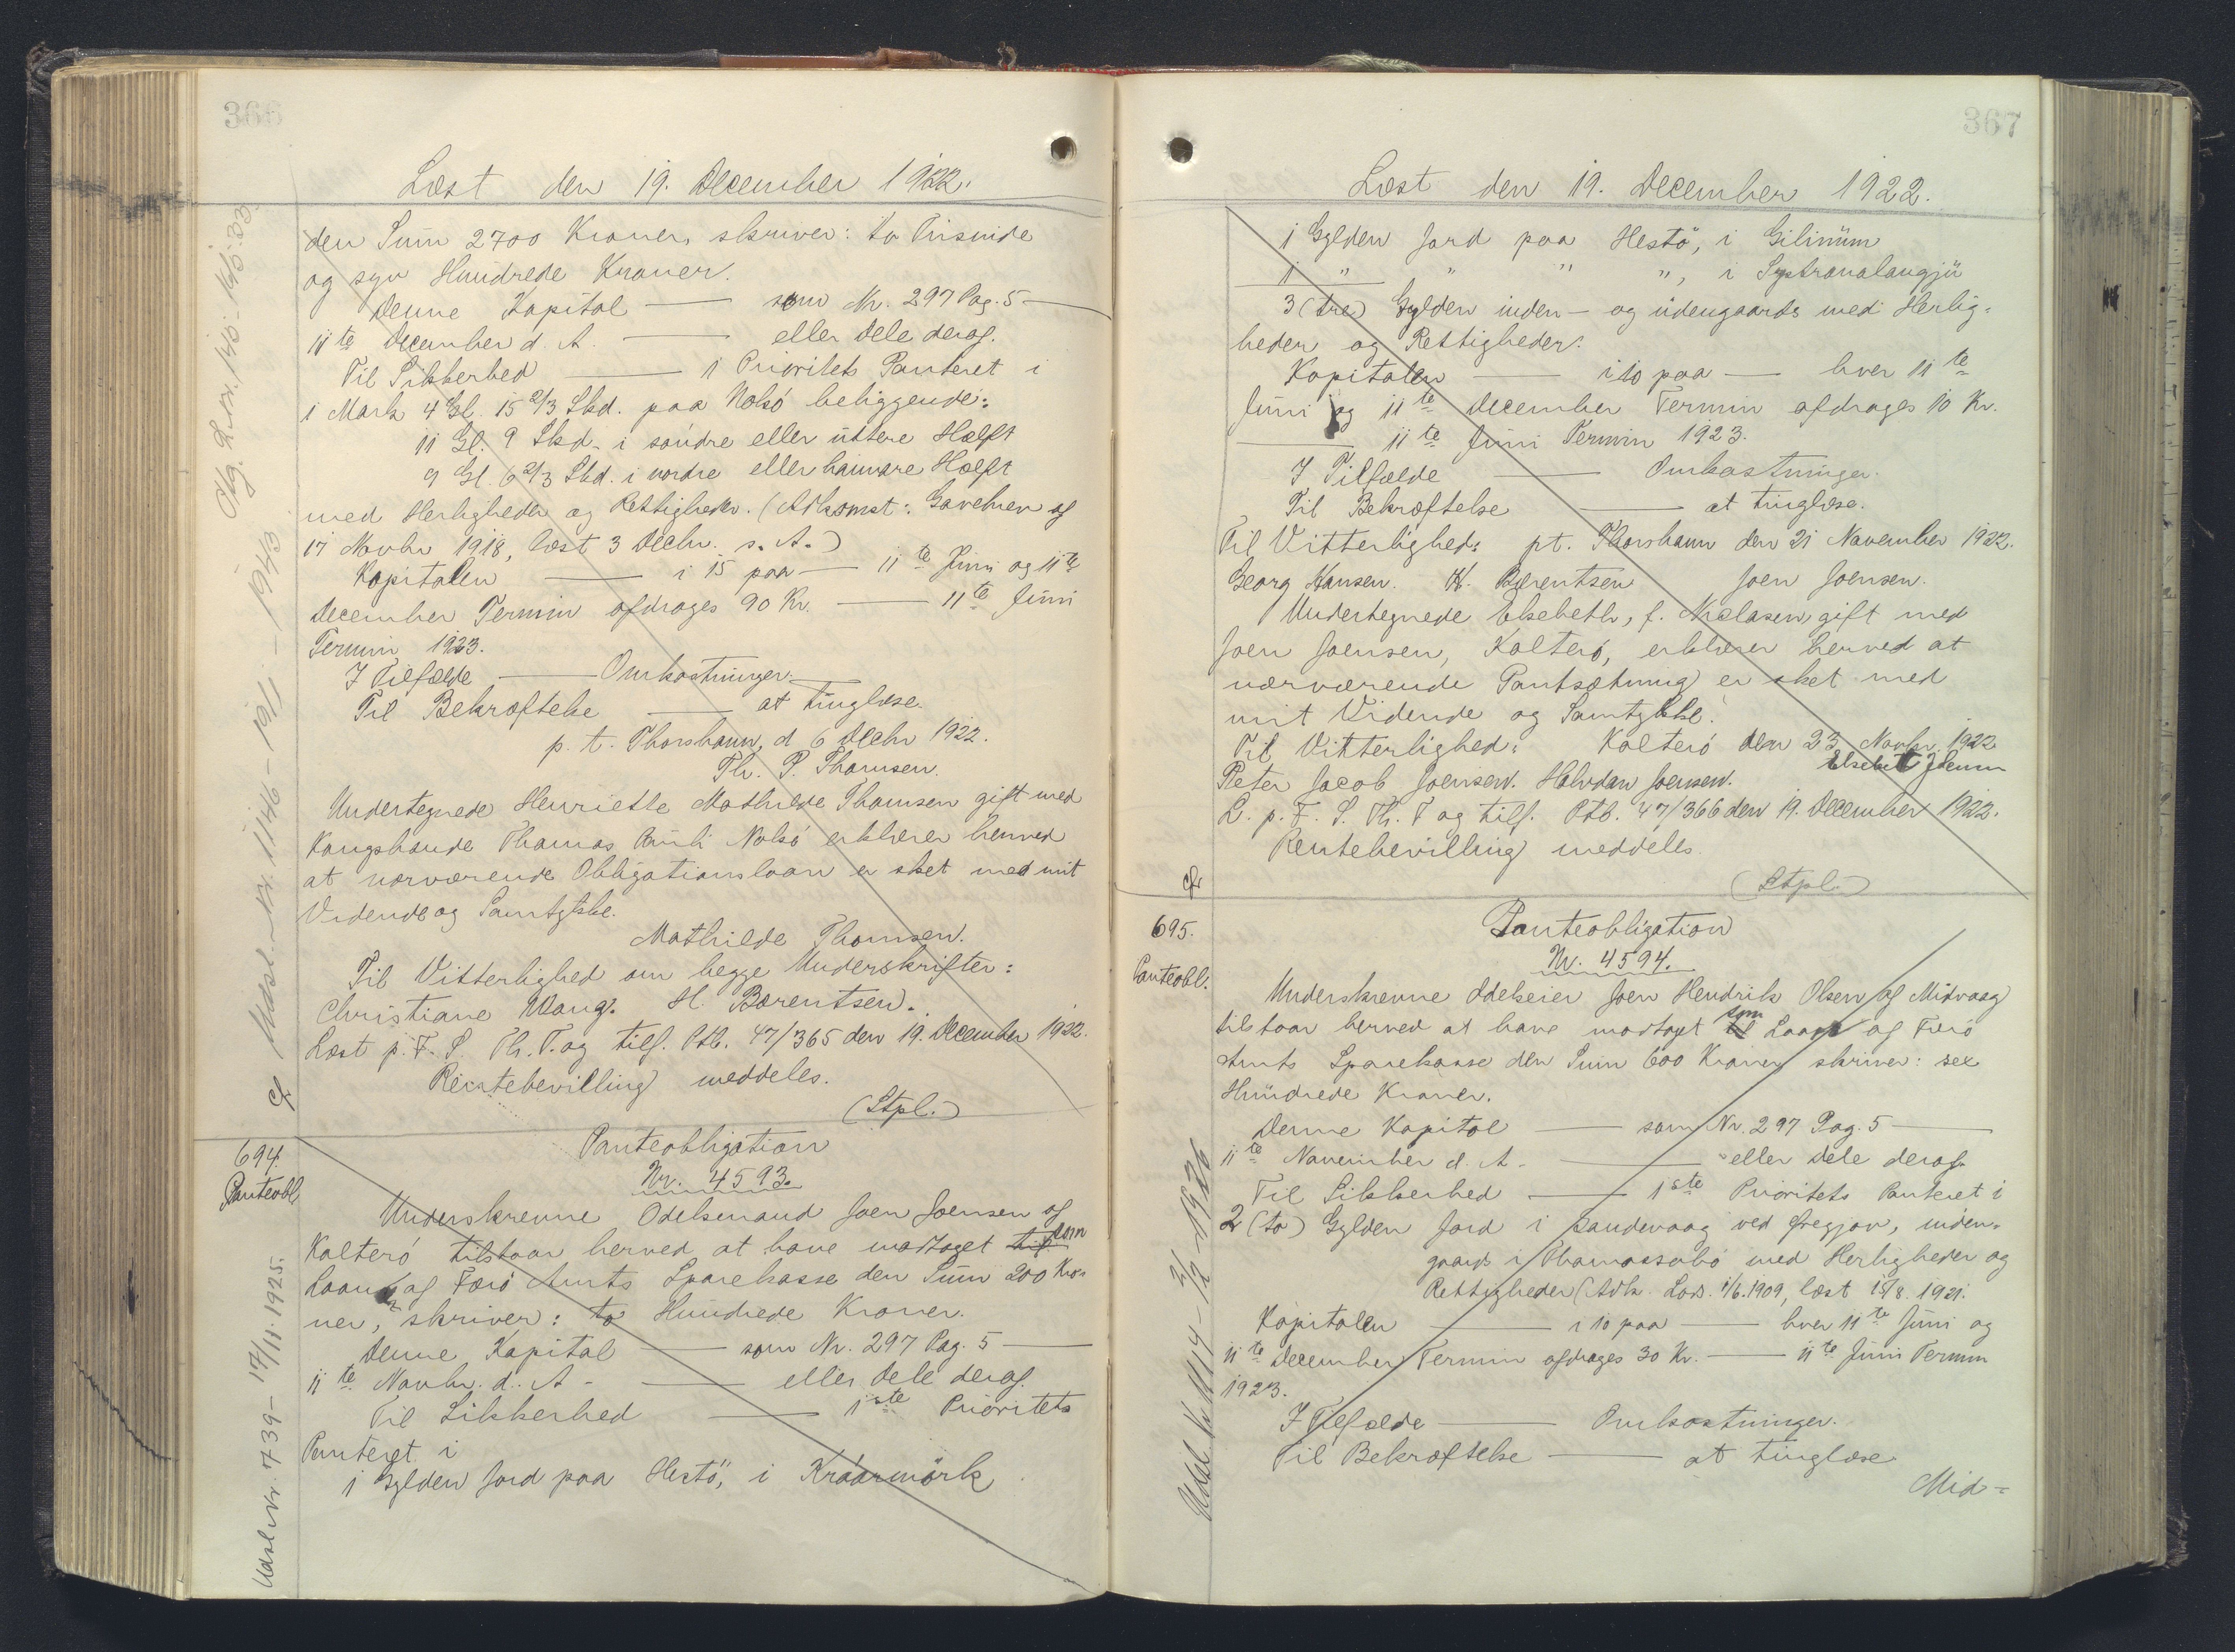 366
Læst den 19. December 1922.
den Sum 2700 Kroner, skriver: to Tusinde
og syv Hundrede Kroner.
Denne Kapital — som Nr. 297 Pag. 5 —
11te December d. A. — eller Dele deraf.
Til Sikkerhed — 1 Prioritets Panteret i
1 Mark 4 Gl. 15 2/3 Skd. paa Nolsö beliggende:
11 Gl. 9 Skd. i søndre eller uttere Hælft
9 Gl. 6 2/3 Skd. i nordre eller haimare Hælft
med Herligheder og Rettigheder. (Adkomst: Gavebrev af
17 Novbr 1918, læst 3 Decbr. s. A.)
Kapitalen — i 15 paa — 11te Juni og 11te
December Termin afdrages 90 Kr. — 11te Juni
Termin 1923.
I Tilfælde — Omkostninger. —
Til Bekræftelse — at tinglæse.
p. t. Thorshavn, d 6 Decbr 1922.
Th. P. Thomsen.
Undertegnede Henriette Mathilde Thomsen gift med
Kongsbonde Thomas Pauli Nolsö erklærer herved
at nærværende Obligationslaan er sket med mit
Vidende og Samtykke.
Mathilde Thomsen.
Til Vitterlighed om begge Underskrifter:
Christiane Wang. H. Bærentsen.
Læst p. F. S. Th. T. og tilf. Ptb. 47/365 den 19. December 1922.
Rentebevilling meddeles.
(Stpl.)
Udsl. Nr. 1146 - 19/1 - 1943
694.
Panteobl
Panteobligation
Nr. 4593.
Underskrevne Odelsmand Joen Joensen af
Kolterö tilstaar herved at have modtaget til som
Laan af Færö Amts Sparekasse den Sum 200 Kro-
ner, skriver: to Hundrede Kroner.
Denne Kapital — som Nr. 297 Pag. 5 —
11te Novbr. d. A. — eller Dele deraf.
Til Sikkerhed — 1ste Prioritets
Panteret i
1 Gylden Jord paa Hestö, i Kráarmörk
Udsl Nr. 739 - 17/11. 1925.
367
Læst den 19. December 1922.
1 Gylden Jord paa Hestö, i Gilinum
1 " " " ", i Systranalangju
3 (tre) Gylden inden- og udengaards med Herlig-
heder og Rettigheder.
Kapitalen — i 10 paa — hver 11te
Juni og 11te December Termin afdrages 10 Kr.
— 11te Juni Termin 1923.
I Tilfælde — Omkostninger.
Til Bekræftelse — at tinglæse.
Til Vitterlighed: pt. Thorshavn den 21 November 1922.
Georg Hansen. H. Bærentsen Joen Joensen.
Undertegnede Elsebeth, f. Niclasen, gift med
Joen Joensen, Kolterö, erklærer herved at
nærværende Pantsætning er sket med
mit Vidende og Samtykke.
Til Vitterlighed: Kolterö den 23 Novbr. 1922
Elsebet Joensen
Peter Jacob Joensen. Halvdan Joensen.
L. p. F. S. Th. T og tilf. Ptb. 47/366 den 19. December 1922.
Rentebevilling meddeles.
(Stpl.)
695.
Panteobl.
Panteobligation
Nr. 4594.
Underskrevne Odelseier Joen Hendrik Olsen af Midvaag
tilstaar herved at have modtaget til som Laan af Færö
Amts Sparekasse den Sum 600 Kroner skriver: sex
Hundrede Kroner.
Denne Kapital — som Nr. 297 Pag. 5 —
11te November d. A. — eller Dele deraf.
Til Sikkerhed — 1ste Prioritets Panteret i
2 (to) Gylden Jord i Sandevaag ved Gregjov, inden-
gaards i Thomassobö med Herligheder og
Rettigheder (Adk. Lods. 1/6. 1909, læst 18/8. 1921.
Kapitalen — i 10 paa — hver 11te Juni og
11te December Termin afdrages 30 Kr. — 11te Juni Termin
1923.
I Tilfælde — Omkostninger.
Til Bekræftelse — at tinglæse
Mid-